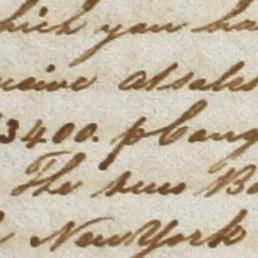 which you ha
ceive at sales
3400. p Cang
The new Ba
New York